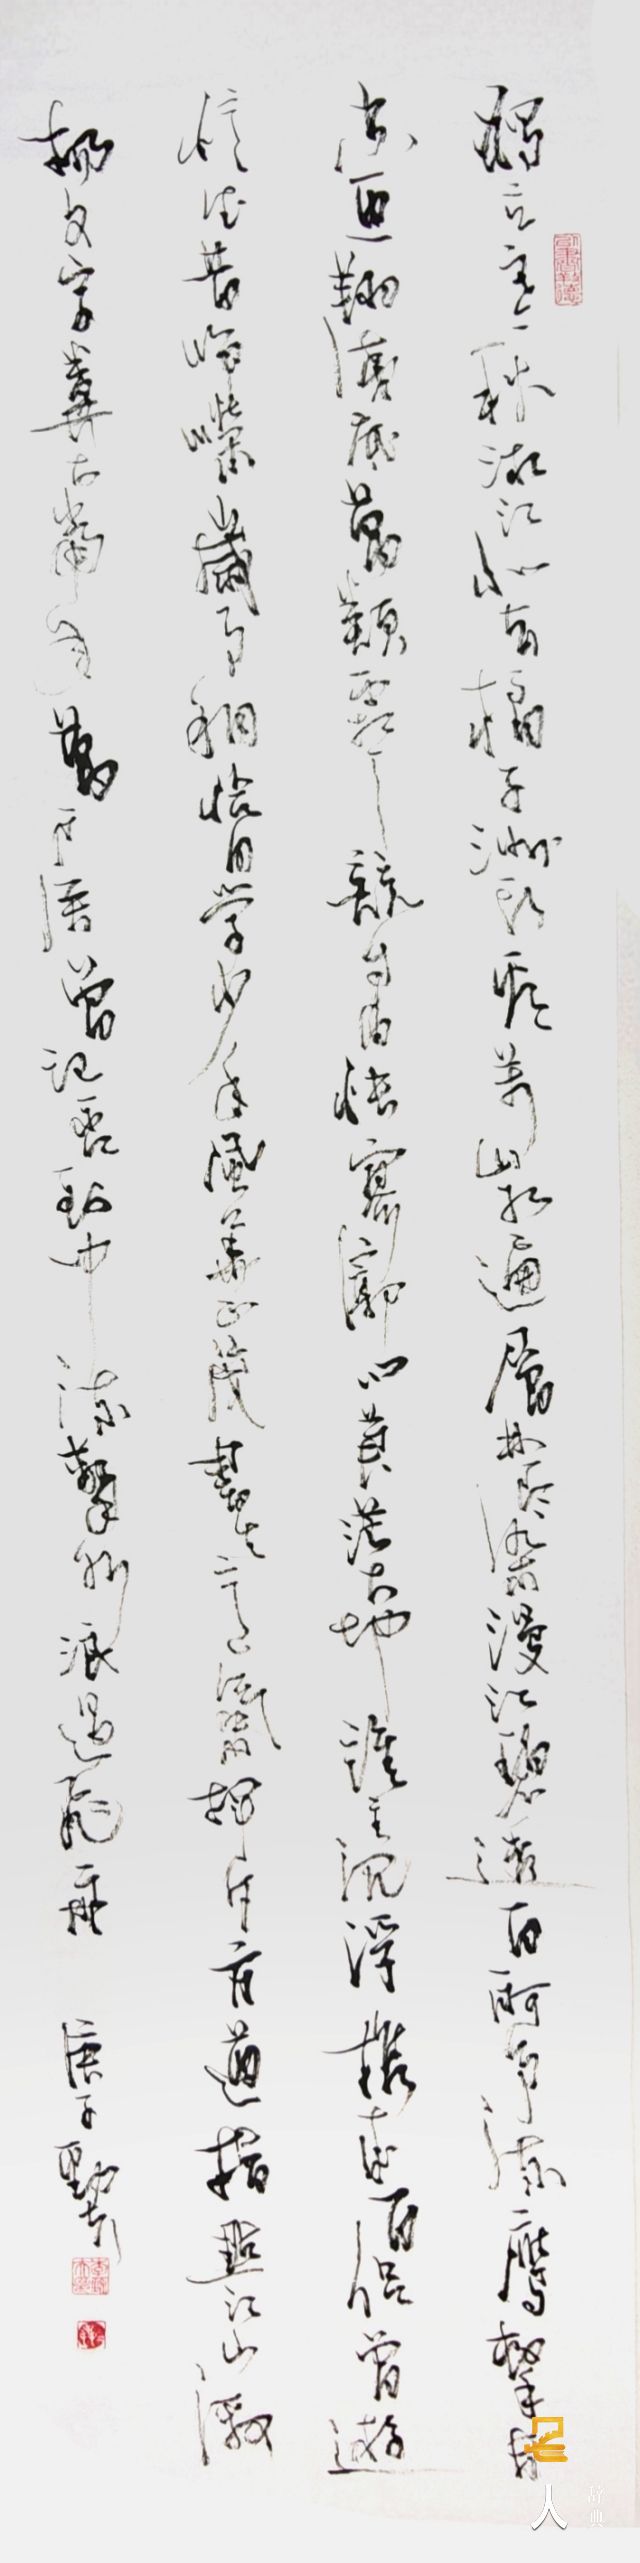 獨立寒秋湘江北去橘子洲頭看萬山紅遍層林盡染漫江碧透百舸爭流鷹擊長
空魚翔淺底萬類霜天競自由悵寥廓問蒼茫大地誰主沉浮攜來百侶曾遊
憶往昔崢嶸歲月稠恰同學少年風華正茂書生意氣揮斥方遒指點江山激
揚文字糞土當年萬戶侯曾記否到中流擊水浪遏飛舟
庚子
名人
辞典